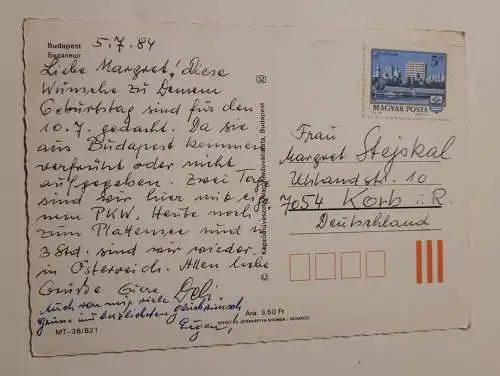 Budapest
Будапешт
5.7.84
Liebe Margret! Diese
Wünsche zu Deinem
Geburtstag sind für den
10.7. gedacht. Da sie
aus Budapest kommen
verfrüht oder nicht
aufgegeben. Zwei Tage
sind wir hier mit
nem PKW. Heute noch
zum Plattensee und in
3 Std. sind wir wieder
in Österreich. Allen liebe
Grüße Eure
Auch von mir viele
Grüße und herzlichsten Glückwunsch
Eugen
MT-38/821
Ára: 3,50 Ft
5 Ft
MAGYAR POSTA
Frau
Margret Stejskal
Uhlandstr. 10
7054 Korb i. R.
Deutschland